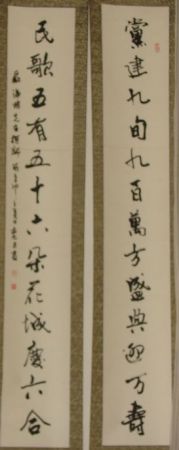 黨建九旬九百萬方盛典迎万壽
民歌五有五十六朵花城慶六合